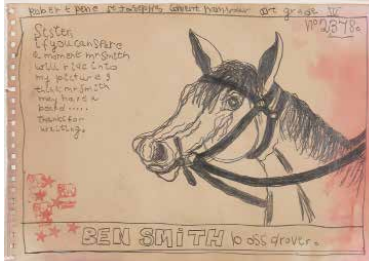 Robert Pene St Joseph's Convent hanmour art grade IV
No 2378.
Sister
if you can spare
a moment mr Smith
will ride into
my picture &
then mr Smith
may have a
board .....
thanks for
waiting.
BEN SMiTH boss drover.